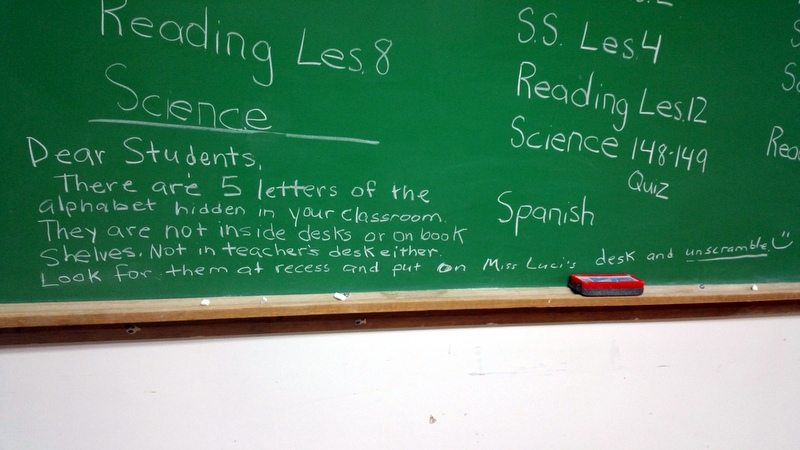 Reading Les. 8
Science
Dear Students,
There are 5 letters of the
alphabet hidden in your classroom.
They are not inside desks or on book
shelves. Not in teacher's desk either.
Look for them at recess and put on Miss Luci's desk and unscramble.
S.S. Les. 4
Reading Les. 12
Science 148-149
Quiz
Spanish